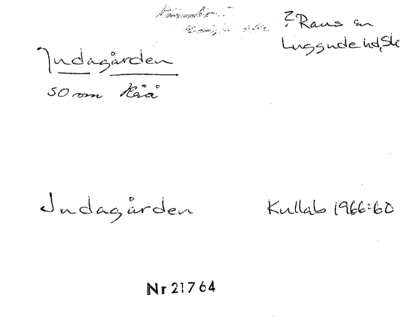 ? Raus sn
Luggude hd, Sk
Judagården
SO om Råå
Judagården Kullab 1966:60
Nr 21764